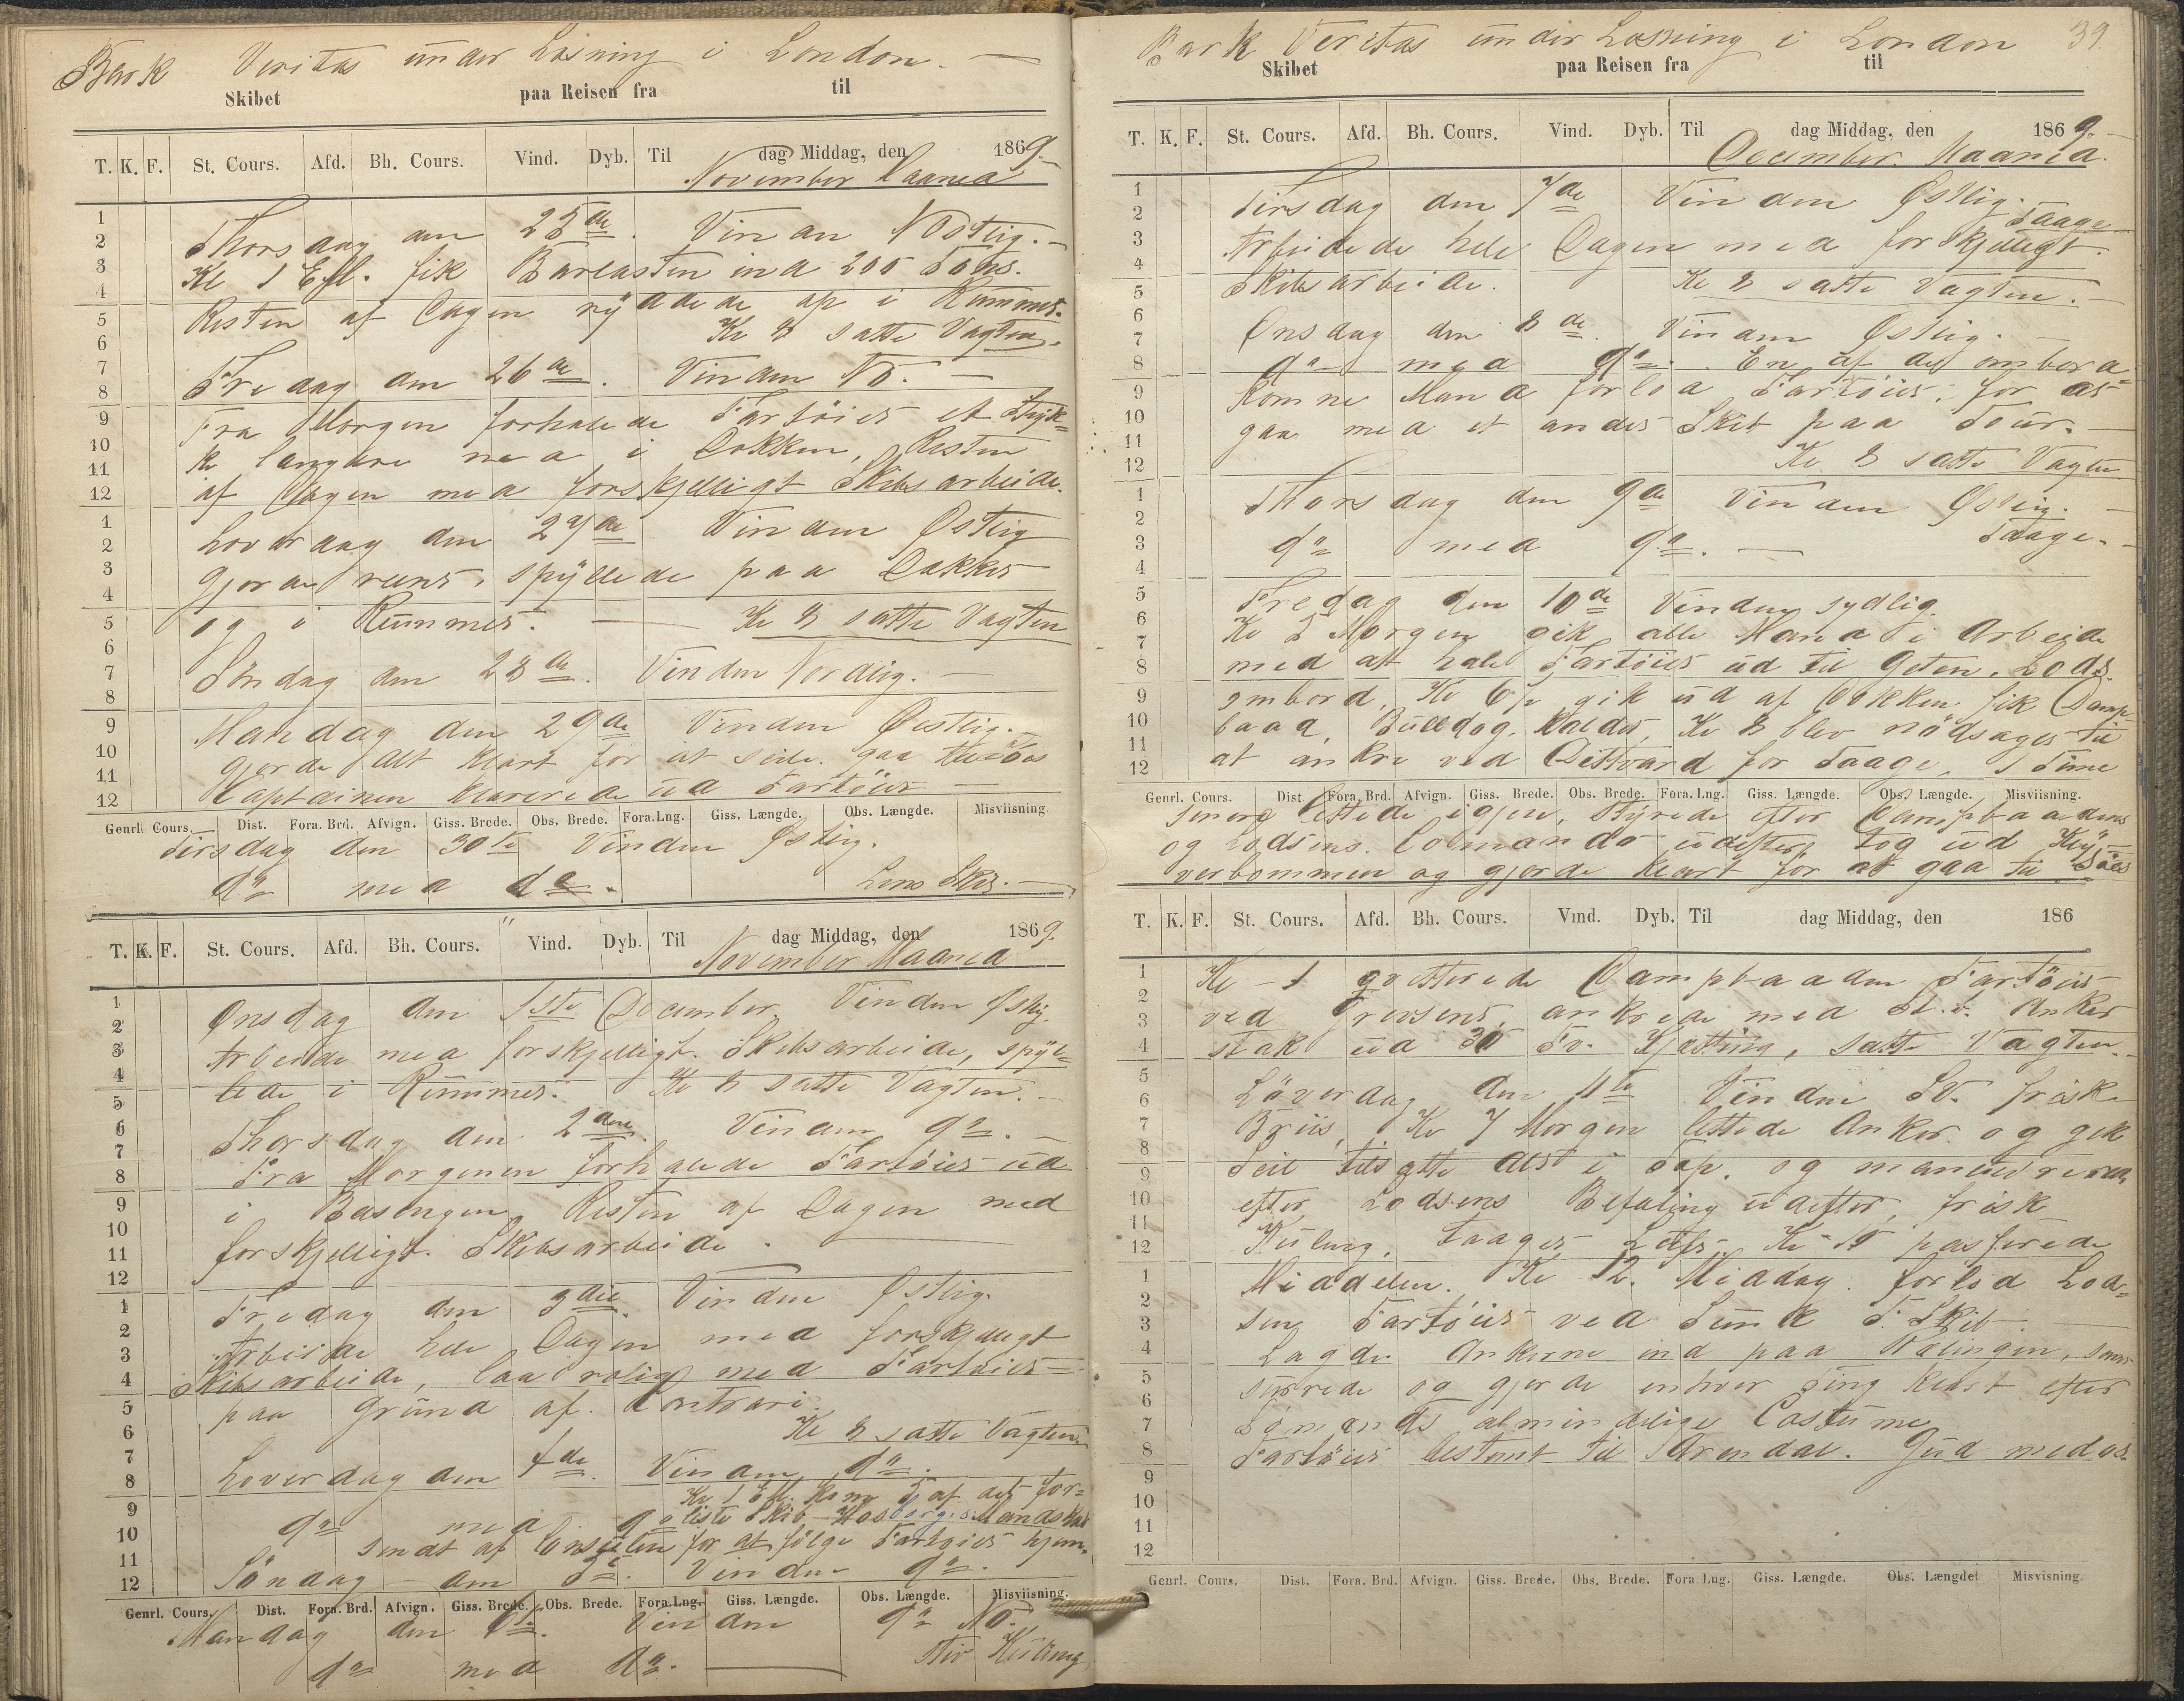 Bark Veritas under Losning i London. —
Skibet paa Reisen fra til
T. K. F. St. Cours. Afd. Bh. Cours. Vind. Dyb. Til dag Middag, den 1869.
November Maaned
Thorsdag den 25de. Vinden NOstlig. —
Kl 1 Efl. fik Barlasten ind 200 Tons.
Resten af Dagen ryddede op i Rummet.
Kl 8 satte Vagten.
Fredag den 26de. Vinden NO. —
Fra Morgen forhalede Fartöiet et Styk=
ke længere ned i Dokken, Resten
af Dagen med forskjelligt Skibsarbeide.
Löverdag den 27de Vinden Östlig
Gjorde reent, spyllede paa Dækket
og i Rummet. — Kl 8 satte Vagten
Söndag den 28de. Vinden Nordlig. —
Mandag den 29de Vinden Östlig.
Gjorde Alt klart for at seile. gaa tilsöes
Captainen klarerede ud Fartöiet —
Genrl. Cours. Dist. Fora. Brd. Afvign. Giss. Brede. Obs. Brede. Fora.Lng. Giss. Længde. Obs. Længde. Misviisning.
Tirsdag den 30te Vinden Östlig.
do med do. Lens Skib. —
T. K. F. St. Cours. Afd. Bh. Cours. Vind. Dyb. Til dag Middag, den 1869.
November Maaned
Onsdag den 1ste December. Vinden Östlig.
Arbeide med forskjelligt Skibsarbeide, spyl=
lede i Rummet. Kl 8 satte Vagten. —
Thorsdag den 2den. Vinden do. —
Fra Morgenen forhalede Fartöiet ud
i Basengen Resten af Dagen med
forskjelligt Skibsarbeide. —
Fredag den 3die. Vinden Östlig.
Arbeide hele Dagen med forskjelligt
Skibsarbeide, laa rolig med Fartöiet
paa Grund af Contrari.
Kl 8 satte Vagten
Löverdag den 4de. Vinden do.
Kl 1 Efl. kom 5 af det for=
do med do liste Skib Mandskab
sendt af Consulen for at fölge Fartöiet hjem.
Söndag den 5te. Vinden do.
Genrl. Cours. Dist. Fora. Brd. Afvign. Giss. Brede. Obs. Brede. Fora.Lng. Giss. Længde. Obs. Længde. Misviisning.
Mandag den 6te. Vinden do NO.
do med do. — Stiv Kuling
Bark Veritas under Losning i London 39.
Skibet paa Reisen fra til
T. K. F. St. Cours. Afd. Bh. Cours. Vind. Dyb. Til dag Middag, den 1869. —
December. Maaned.
Tirsdag den 7de Vinden Östlig. Taage
Arbeidede hele Dagen med forskjelligt.
Skibsarbeide. Kl 8 satte Vagten. —
Onsdag den 8de. Vinden Östlig. —
do med do. En af de ombord=
komne Mand forlod Fartöiet, for at
gaa med et andet Skib paa Tour. —
Kl 8 satte Vagten
Thorsdag den 9de Vinden Östlig. —
do med do. — Taage. —
Fredag den 10de Vinden sydlig.
Kl 5 Morgen gik alle Mand i Arbeide
med at hale Fartöiet ud til Geten. Lods
ombord, Kl 6½ gik ud af Dokken fik Damp=
baad, Bulldog, kaldet, Kl 8 blev nödsaget til
at ankre ved for Taage, 1 Time
Genrl. Cours. Dist Fora. Brd. Afvign. Giss. Brede. Obs. Brede. Fora.Lng. Giss. Længde. Obs. Længde. Misviisning.
senere lettede igjen, styrede efter Dampbaadens
og Lodsens Comando udefter, tog ud Kly=
verbommen og gjorde klart for at gaa til Söes
T. K. F. St. Cours. Afd. Bh. Cours. Vind. Dyb. Til dag Middag, den 186
Kl 1 qvitterede Dampbaaden Fartöiet
ved ankrede med St.b. Anker
stak ud 30 Fv. Kjætting, satte Vagten. —
Löverdag den 11te Vinden SV. frisk
Briis, Kl 7 Morgen lettede Anker og gik
Seil tilsatte alt i Top. og manuvrerede
efter Lodsens Befaling udefter, frisk
Kuling, Taaget Luft Kl 10 passerede
Middelen. Kl 12. Middag. forlod Lod=
sen Fartöiet ved Sunk F. Skib. —
Lagde Ankerne ind paa Rælingen,
surrede og gjorde enhver Ting klart efter
Sömands almindelige Costume
Fartöiet bestemt til Arendal. Gud med os.
Genrl. Cours. Dist. Fora. Brd. Afvign. Giss. Brede. Obs. Brede. Fora Lng. Giss. Længde. Obs. Længde Misvisning.